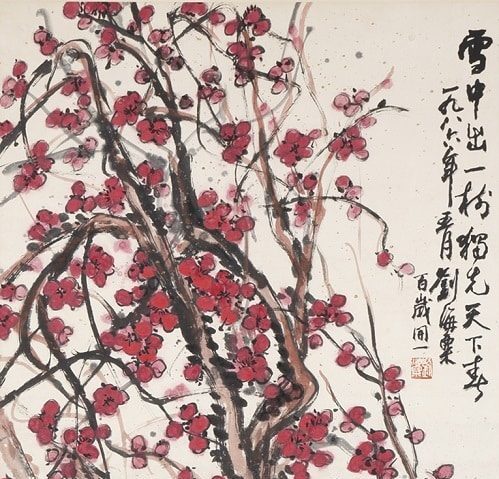 雪中出一枝獨先天下春
一九八六年月劉海粟
百歲開一